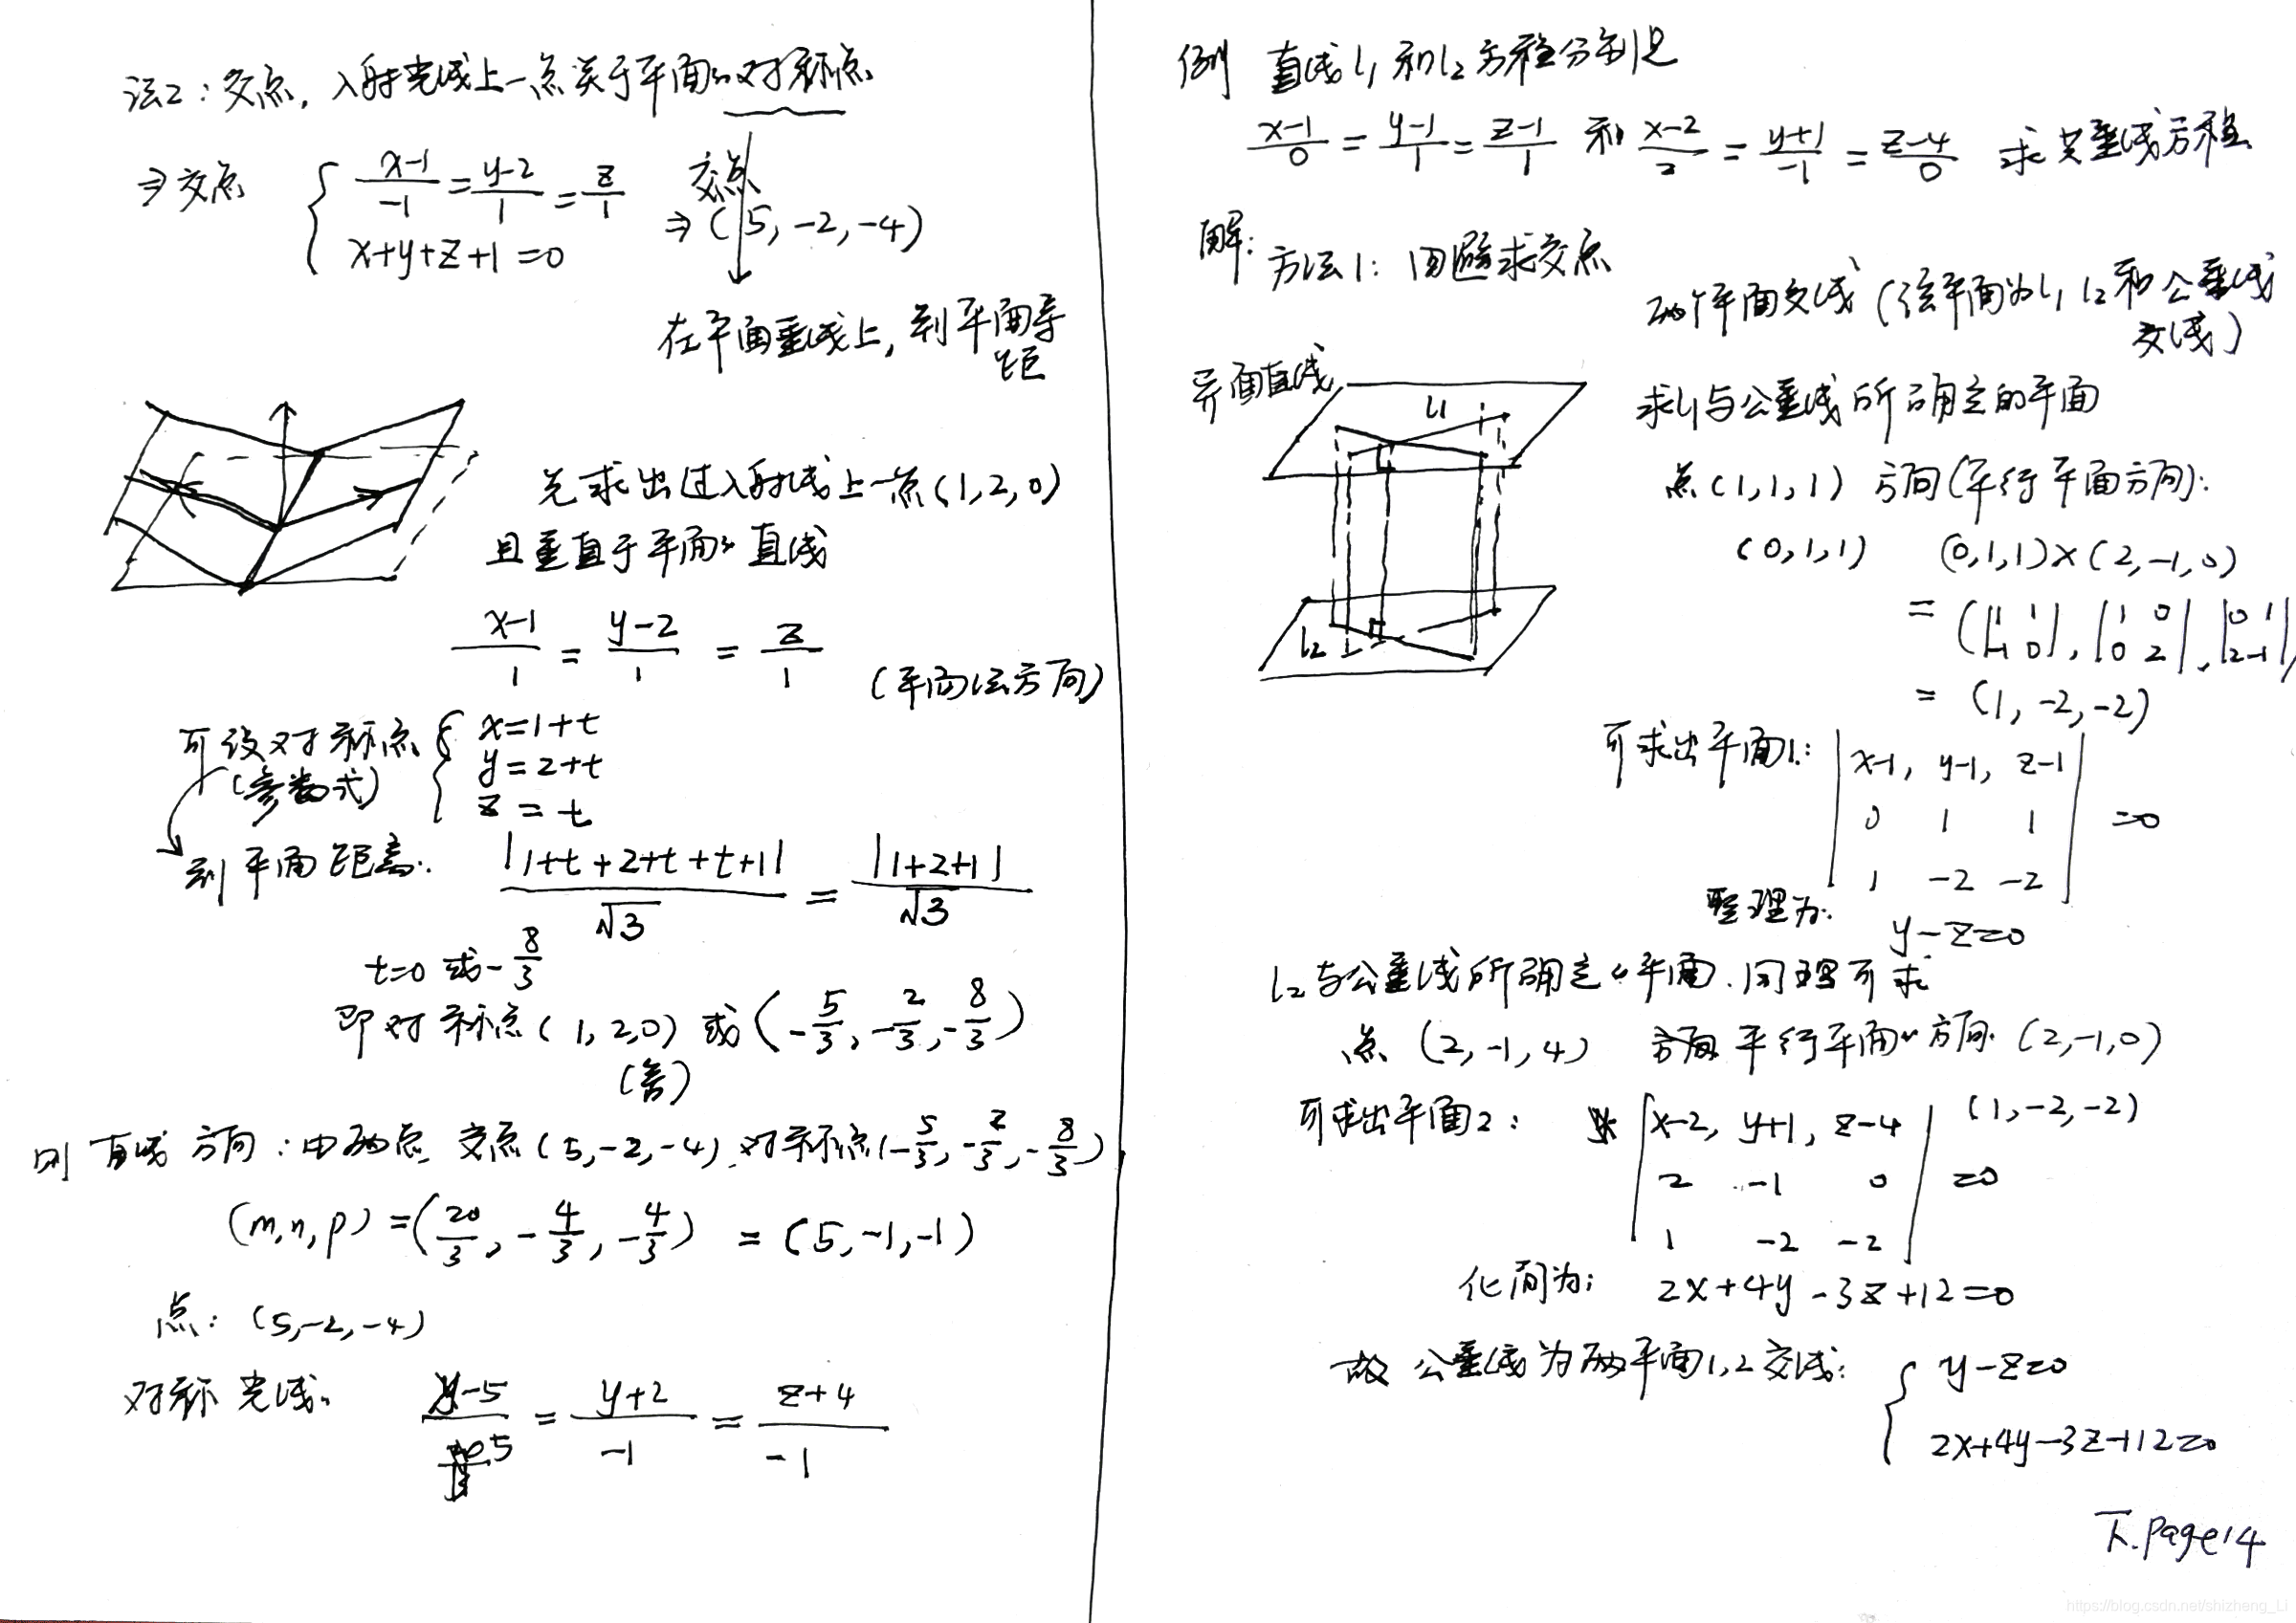 法2：交点，入射光线上一点关于平面的对称点
⇒交点 { (x-1)/-1 = (y-2)/1 = z/1
x+y+z+1=0
交点
⇒ (5, -2, -4)
在平面垂线上，到平面等
距
先求出过入射线上一点(1,2,0)
且垂直于平面的直线
(x-1)/1 = (y-2)/1 = z/1
(平面法方向)
可设对称点 { x=1+t
(参数式) y=2+t
z=t
到平面距离: |1+t+2+t+t+1|/√3 = |1+2+1|/√3
t=0 或 -8/3
即对称点(1,2,0) 或 (-5/3, -2/3, -8/3)
(舍)
则直线方向：由两点 交点(5,-2,-4) 对称点(-5/3, -2/3, -8/3)
(m,n,p) = (20/3, -4/3, -4/3) = (5,-1,-1)
点: (5,-2,-4)
对称光线: (x-5)/5 = (y+2)/-1 = (z+4)/-1
例 直线l₁和l₂方程分别是
(x-1)/0 = (y-1)/1 = (z-1)/1 和 (x-2)/2 = (y+1)/-1 = (z-4)/0 求公垂线方程
解: 方法1: 回避求交点
两个平面交线 (该平面为l₁ l₂和公垂线
交线)
异面直线
l₁
l₂
求l₁与公垂线所确定的平面
点(1,1,1) 方向(平行平面方向):
(0,1,1) (0,1,1)×(2,-1,0)
= (|1 1; -1 0|, |1 0; 0 2|, |0 1; 2 -1|)
= (1, -2, -2)
可求出平面1: | x-1, y-1, z-1 |
0 1 1 =0
1 -2 -2
整理为: y-z=0
l₂与公垂线所确定的平面.同理可求
点 (2,-1,4) 方向平行平面的方向 (2,-1,0)
(1,-2,-2)
可求出平面2: | x-2, y+1, z-4 |
2 -1 0 =0
1 -2 -2
化简为: 2x+4y-3z+12=0
故 公垂线为两平面1,2交线: { y-z=0
2x+4y-3z+12=0
下.page14
https://blog.csdn.net/shizheng_Li